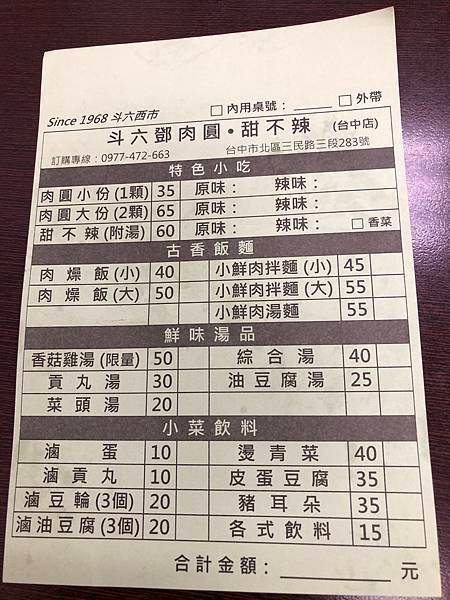 Since 1968 斗六西市 □內用桌號：_____ □外帶
斗六鄧肉圓•甜不辣 (台中店)
訂購專線：0977-472-663 台中市北區三民路三段283號
特色小吃
肉圓小份(1顆) 35 原味： 辣味：
肉圓大份(2顆) 65 原味： 辣味：
甜不辣(附湯) 60 原味： 辣味： □香菜
古香飯麵
肉燥飯(小) 40 小鮮肉拌麵(小) 45
肉燥飯(大) 50 小鮮肉拌麵(大) 55
小鮮肉湯麵 55
鮮味湯品
香菇雞湯(限量) 50 綜合湯 40
貢丸湯 30 油豆腐湯 25
菜頭湯 20
小菜飲料
滷蛋 10 燙青菜 40
滷貢丸 10 皮蛋豆腐 35
滷豆輪(3個) 20 豬耳朵 35
滷油豆腐(3個) 20 各式飲料 15
合計金額：________元